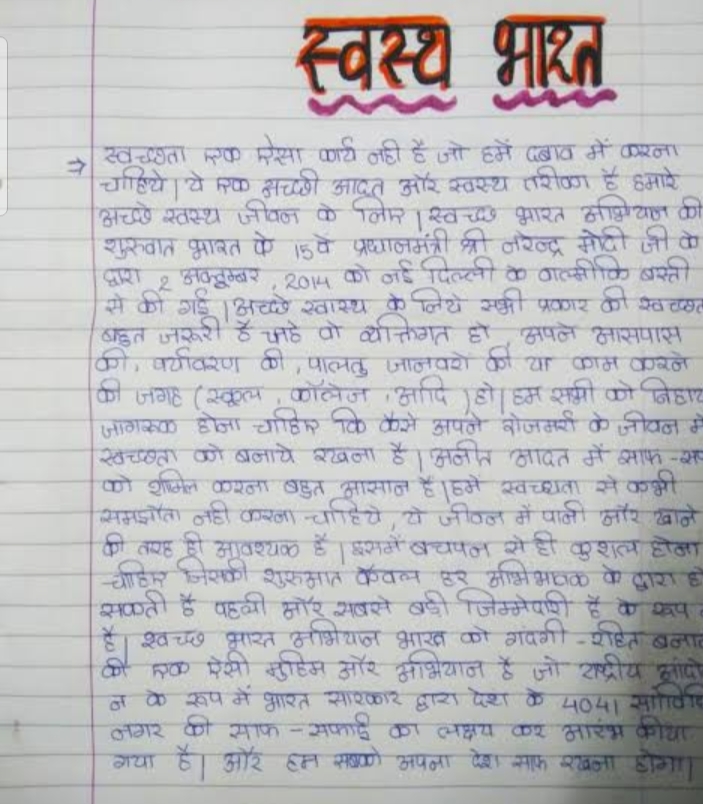 स्वस्थ भारत
⇒ स्वच्छता एक ऐसा कार्य नही है जो हमें दबाव में करना
चाहिये। ये एक अच्छी आदत और स्वस्थ तरीका है हमारे
अच्छे स्वस्थ जीवन के लिए। स्वच्छ भारत अभियान की
शुरुवात भारत के 15वे प्रधानमंत्री श्री नरेन्द्र मोदी जी के
द्वारा 2 अक्टूम्बर, 2014 को नई दिल्ली के वाल्मीकि बस्ती
से की गई। अच्छे स्वास्थ के लिये सभी प्रकार की स्वच्छत
बहुत जरूरी है चाहे वो व्यक्तिगत हो, अपने आसपास
की, पर्यावरण की, पालतु जानवरो की या काम करने
की जगह (स्कूल, कॉलेज, आदि) हो। हम सभी को निहाय
जागरूक होना चाहिए कि कैसे अपने रोजमर्रा के जीवन मे
स्वच्छता को बनाये रखना है। आदत में साफ-सफ
को करना बहुत आसान है। हमे स्वच्छता से कभी
समझौता नही करना चाहिये, ये जीवन में पानी और खाने
की तरह ही आवश्यक है। इसमें बचपन से ही कुशल होना
चाहिए जिसकी शुरुआत केवल हर अभिभावक के द्वारा हो
सकती है पहली और सबसे बड़ी जिम्मेदारी है के रूप
है। स्वच्छ भारत अभियान भारत को गंदगी-रहित बनाने
की एक ऐसी मुहिम और अभियान है जो राष्ट्रीय आंदो
न के रूप में भारत सारकार द्वारा देश के 4041 सांविधि
नगर की साफ-सफाई का लक्षय कर आरंभ कीया
गया है। और हम सबको अपना देश साफ रखना होगा।